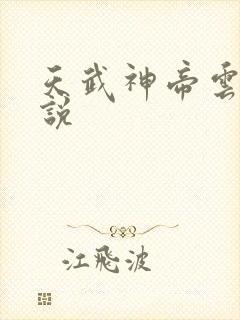 天武神帝雲
說
江飛波